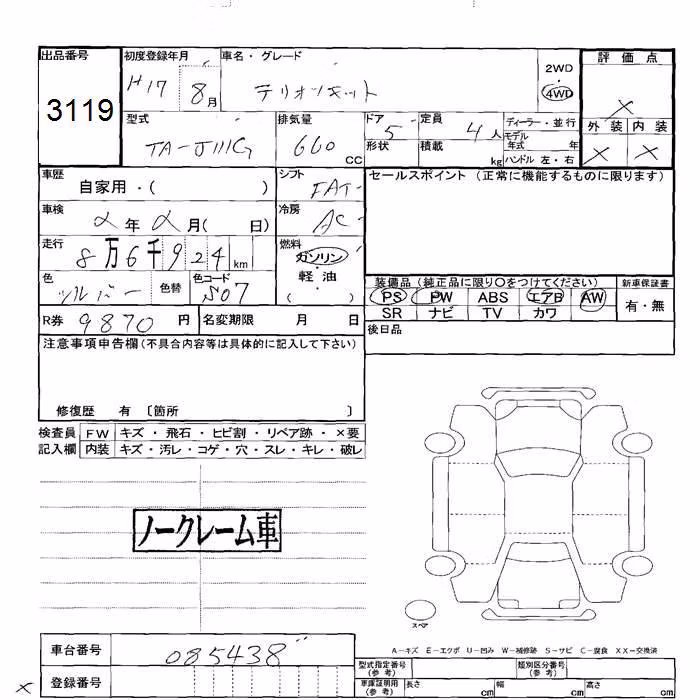 出品番号
3119
初度登録年月
H17 8月
車名・グレード
テリオスキッド
2WD
4WD
評価点
×
外装 内装
× ×
型式
TA-J111G
排気量
660 CC
ドア 5
形状
定員 4人
積載 kg
ディーラー・並行
モデル年式 年
ハンドル 左・右
車歴
自家用・( )
シフト
FAT
車検
2年2月( 日)
冷房
AC
走行
8万6千924km
燃料
ガソリン
・
軽油
( )
色
シルバー
色替
色コード
S07
R券 9870円
名変期限 月 日
セールスポイント (正常に機能するものに限ります)
装備品 (純正品に限り○をつけてください)
PS PW ABS エアB AW
SR ナビ TV カワ
新車保証書
有・無
後日品
注意事項申告欄(不具合内容等は具体的に記入して下さい)
修復歴 有 〔箇所 〕
検査員 FW キズ・飛石・ヒビ割・リペア跡・×要
記入欄 内装 キズ・汚レ・コゲ・穴・スレ・キレ・破レ
ノークレーム車
スペア
A-キズ E-エクボ U-凹み W-補修跡 S-サビ C-腐食 XX-交換済
車台番号 085438
× 登録番号
型式指定番号(参考)
類別区分番号(参考)
車庫証明用(参考) 長さ cm 幅 cm 高さ cm